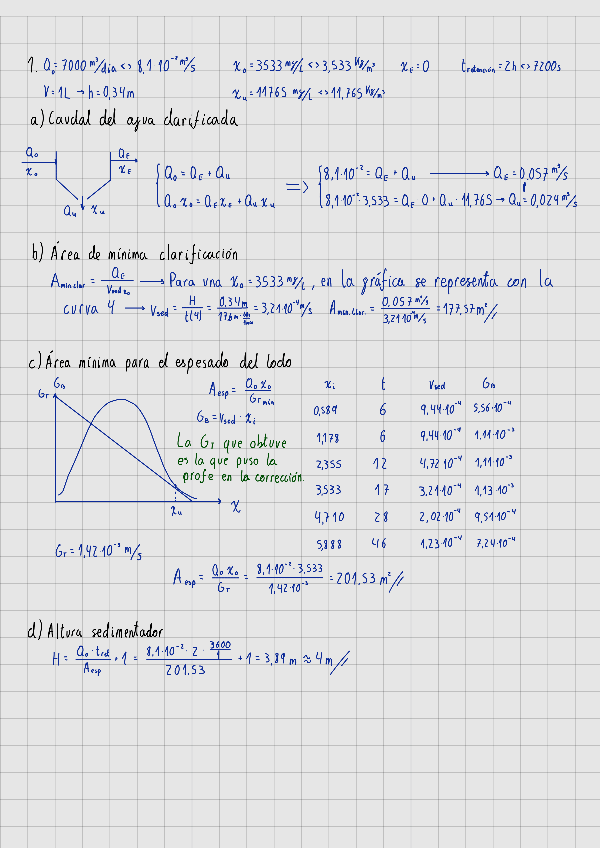 1. Q₀= 7000 m³/día <=> 8,1·10⁻² m³/s x₀ = 3533 mg/L <=> 3,533 kg/m³ x_E = 0 t retención = 2h <=> 7200s
V = 1L → h = 0,34m x_u = 11765 mg/L <=> 11,765 kg/m³
a) Caudal del agua clarificada
Q₀ x₀ Q_E x_E Q_u x_u
{ Q₀ = Q_E + Q_u => { 8,1·10⁻² = Q_E + Q_u → Q_E = 0,057 m³/s
Q₀ x₀ = Q_E x_E + Q_u x_u 8,1·10⁻²·3,533 = Q_E · 0 + Q_u · 11,765 → Q_u = 0,024 m³/s
b) Área de mínima clarificación
A min.clar = Q_E / V sed x₀ → Para una x₀ = 3533 mg/L, en la gráfica se representa con la
curva 4 → V sed = H / t(4) = 0,34m / 17,6 m · = 3,21·10⁻⁴ m/s A min.clar. = 0,057 m³/s / 3,21·10⁻⁴ m/s = 177,57 m² //
c) Área mínima para el espesado del lodo
G_T G_B x x_u
A esp = Q₀ x₀ / G_T min
G_B = V sed · x_i
La G_T que obtuve
es la que puso la
profe en la corrección.
x_i t V sed G_B
0,589 6 9,44·10⁻⁴ 5,56·10⁻⁴
1,178 6 9,44·10⁻⁴ 1,11·10⁻³
2,355 12 4,72·10⁻⁴ 1,11·10⁻³
3,533 17 3,21·10⁻⁴ 1,13·10⁻³
4,710 28 2,02·10⁻⁴ 9,51·10⁻⁴
5,888 46 1,23·10⁻⁴ 7,24·10⁻⁴
G_T = 1,42·10⁻³ m/s
A esp = Q₀ x₀ / G_T = 8,1·10⁻²·3,533 / 1,42·10⁻³ = 201,53 m² //
d) Altura sedimentador
H = Q₀ · t ret / A esp + 1 = 8,1·10⁻² · 2 · 3600/1 / 201,53 + 1 = 3,89 m ≈ 4 m //